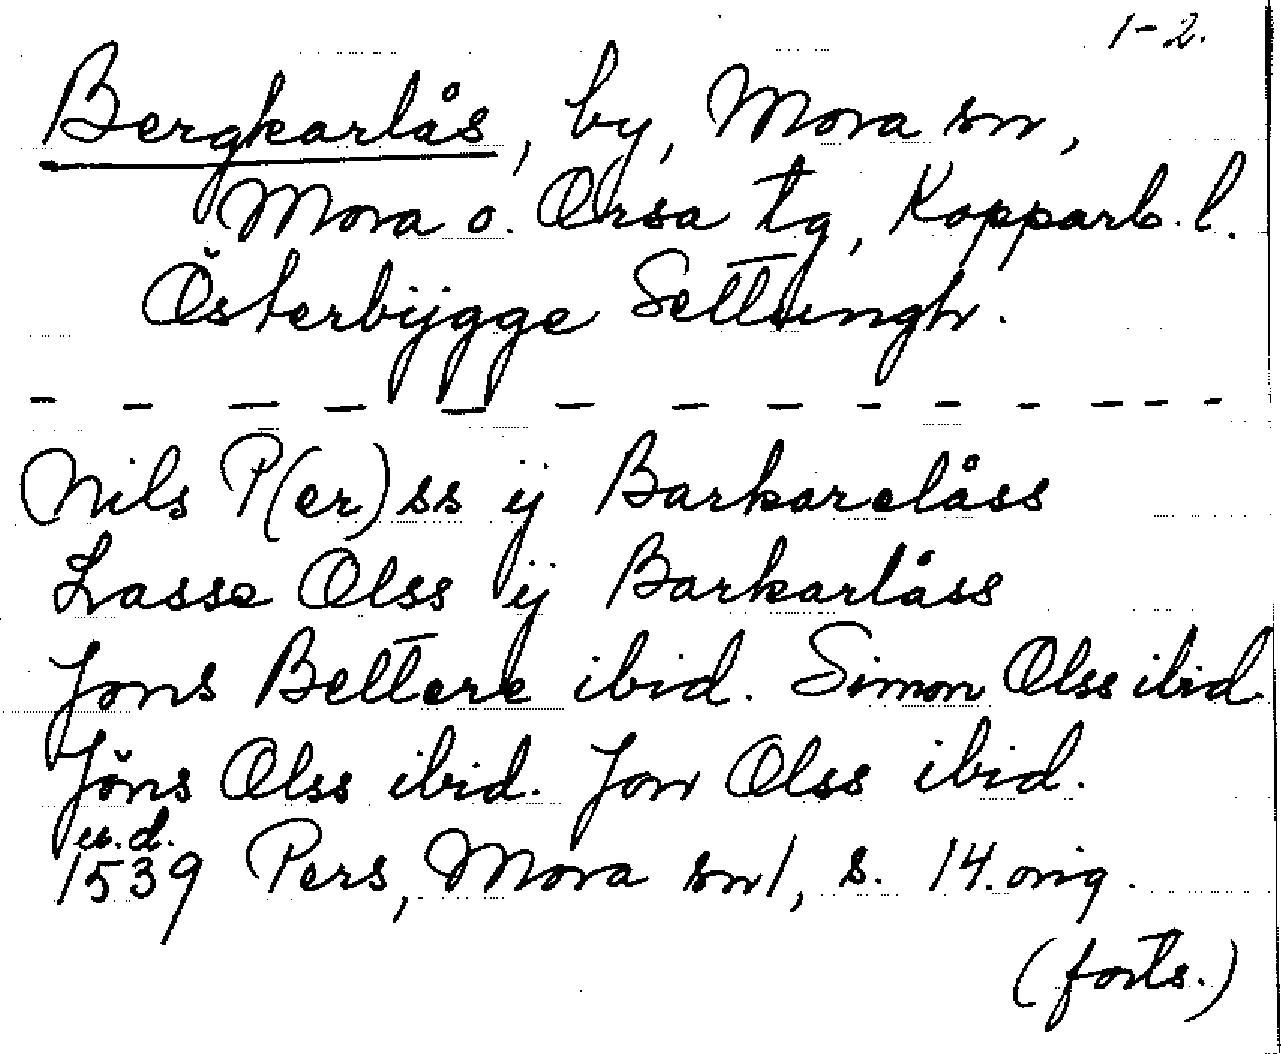 1-2.
Bergkarlås, by, Mora sn,
Mora o. Orsa tg, Kopparb. l.
Österbÿgge Settungh.
Nils P(er)ss ij Barkarelåss
Lasse Olss ij Barkarlåss
Jons Bettere ibid. Simon Olss ibid.
Jöns Olss ibid. Jon Olss ibid.
u.d.
1539 Pers, Mora sn1, s. 14. orig.
(forts.)